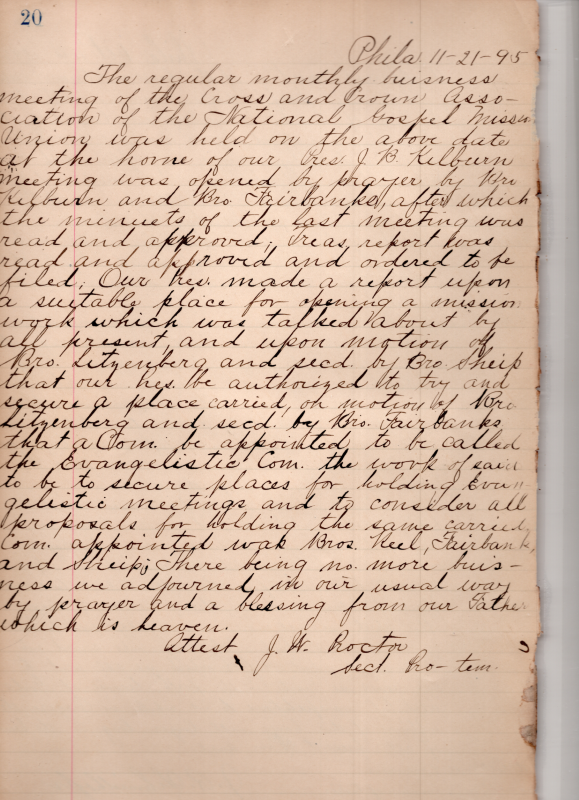 20
Phila. 11-21-95
The regular monthly buisness
meeting of the Cross and Crown Asso-
ciation of the National Gospel Mission
Union was held on the above date
at the home of our Pres. J. B. Kilburn
meeting was opened by prayer by Bro
Kilburn and Bro. Fairbanks, after which
the minuets of the last meeting was
read and approved; Treas. report was
read and approvid and ordered to be
filed; Our Pres. made a report upon
a suitable place for opening a mission
work which was talked about by
all present, and upon motion of
Bro. Litzenberg and secd. by Bro. Sheip
that our Pres. be authorized to try and
secure a place carried, on motion of Bro
Litzenberg and secd. by Bro. Fairbanks
that a Com. be appointed to be called
the Evangelistic Com. the work of said
to be to secure places for holding Evan-
gelistic meetings and to consider all
proposals for holding the same carried
Com. appointed was Bros. Neel, Fairbanks,
and Sheip; There being no more buis-
ness we adjourned in our usual way
by prayer and a blessing from our Father
which is heaven.
Attest J. W. Proctor
Sect. Pro-tem.